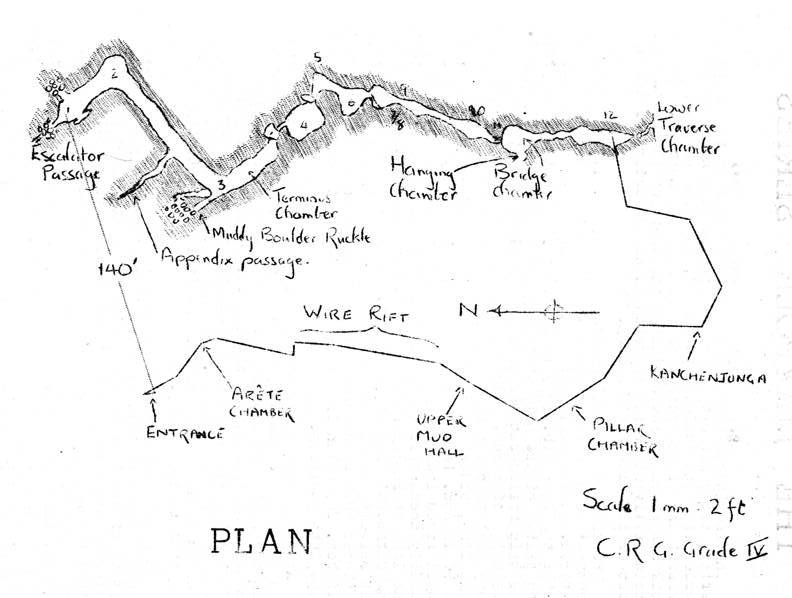 5
2
9
1
6
10
4
7/8
11
12
Lower
Traverse
Chamber
Escalator
Passage
3
Hanging
Chamber
Bridge
chamber
Terminus
Chamber
Muddy Boulder Ruckle
Appendix passage.
140'
WIRE RIFT
N
KANCHENJUNGA
ARÊTE
CHAMBER
ENTRANCE
UPPER
MUD
HALL
PILLAR
CHAMBER
Scale 1mm : 2ft
PLAN
C.R.G. Grade IV